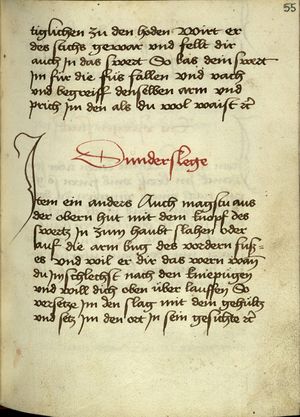 55
tiglichen zu den hoden Wirt er
des stichs gewar und felt dir
auch in das swert So las dein swert
im für die füs fallen und vach
und begreiff denselben arm und
prich im den als du wol waist etc
Dunderslege
Item ein anders Auch magstu aus
der obern hut mit dem knopf des
swertz in zum haubt slahen oder
auf die arm bug des vordern fuß=
es und wil er dir das wern wan
du in schlechst nach den kniepügen
und will dich oben über lauffen So
versetze im den slag mit dem gehültz
und setz im den ort in sein gesichte etc